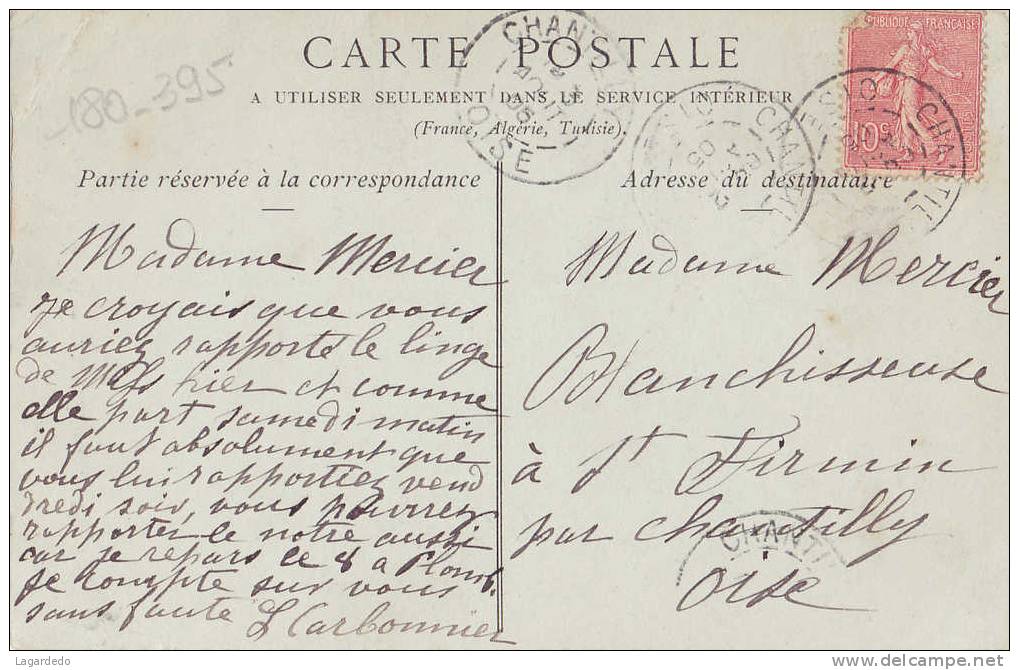 180-395
CARTE POSTALE
A UTILISER SEULEMENT DANS LE SERVICE INTÉRIEUR
(France, Algérie, Tunisie).
RÉPUBLIQUE FRANÇAISE
10c
CHANTILLY
OISE
Partie réservée à la correspondance
Adresse du destinataire
Madame Mercier
je croyais que vous
auriez rapporté le linge
de hier et comme
elle part samedi matin
il faut absolument que
vous lui rapportiez vend
dredi soir, vous pourrez
rapporter le notre aussi
car je repars le 8 a Plomb.
je compte sur vous
sans faute L Carbonnier
Madame Mercier
Blanchisseuse
à St Firmin
par chantilly
oise
CHANTI
Lagardedo
delcampe.net